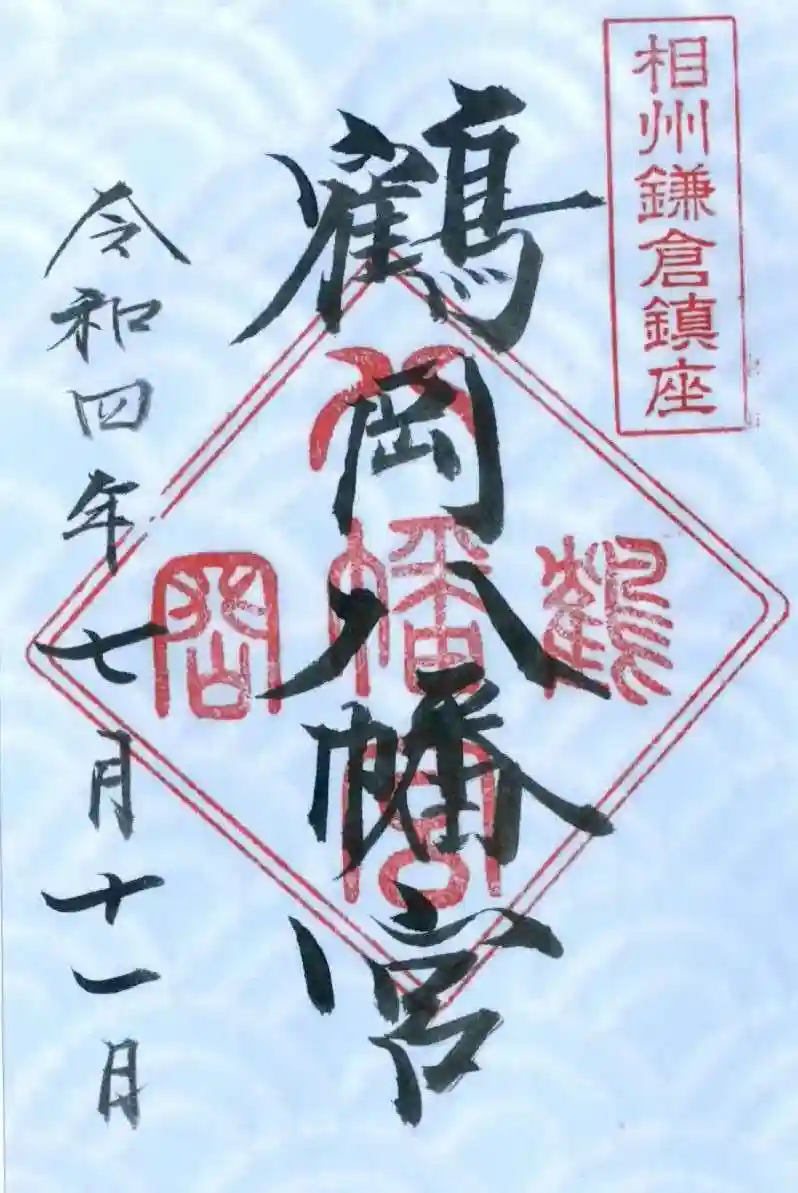 相州鎌倉鎮座
鶴岡八幡宮
鶴
八幡宮
岡
令和四年七月十一日